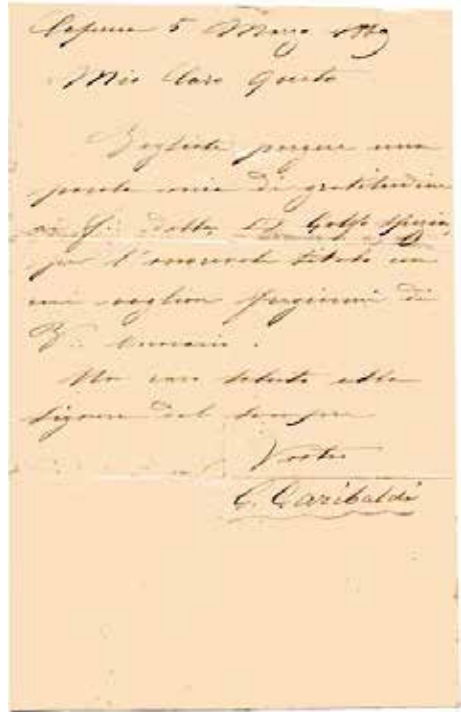 Caprera 5 Marzo 1869
Mio Caro Questa
Vogliate porgere una
parola mia di gratitudine
ai f∴ della Golfo Spezia,
per l'onorevole titolo con
cui voglion fregiarmi di
V∴ onorario.
Un caro saluto alla
Signora dal sempre
Vostro
G. Garibaldi